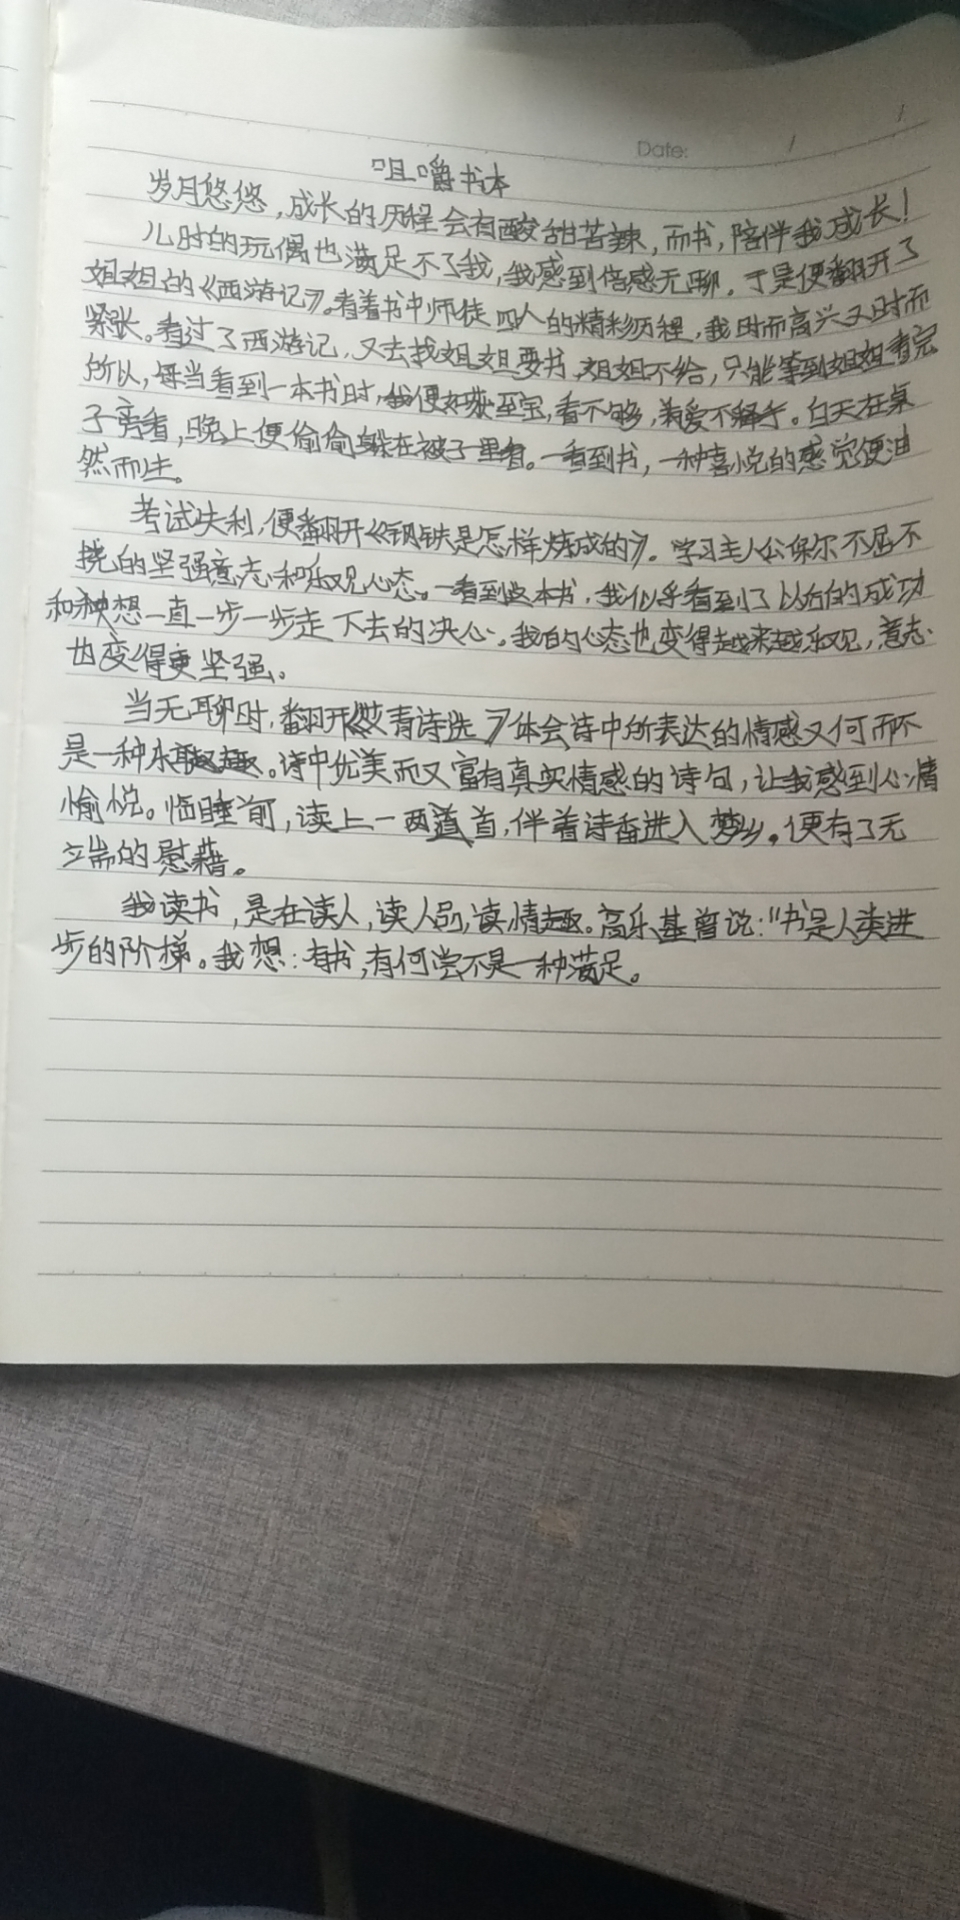 Date: / /
咀嚼书本
岁月悠悠，成长的历程会有酸甜苦辣，而书，陪伴我成长！
儿时的玩偶也满足不了我，我感到倍感无聊。于是便翻开了
姐姐的《西游记》。看着书中师徒四人的精彩历程，我时而高兴又时而
紧张。看过了西游记，又去找姐姐要书，姐姐不给，只能等到姐姐看完
所以，每当看到一本书时，我便如获至宝，看不够，爱不释手。白天在桌
子旁看，晚上便偷偷躲在被子里看。一看到书，一种喜悦的感觉便油
然而生。
考试失利，便翻开《钢铁是怎样炼成的》。学习主人公保尔不屈不
挠的坚强意志和乐观心态。一看到这本书，我似乎看到了以后的成功
和 想一直一步一步走下去的决心。我的心态也变得越来越乐观，意志
也变得更坚强。
当无聊时，翻开《艾青诗选》体会诗中所表达的情感又何而不
是一种乐趣。诗中优美而又富有真实情感的诗句，让我感到心情
愉悦。临睡前，读上一两首，伴着诗香进入梦乡。便有了无
端的慰藉。
我读书，是在读人，读人品，读情趣。高尔基曾说："书是人类进
步的阶梯。我想：有书，有何尝不是一种满足。